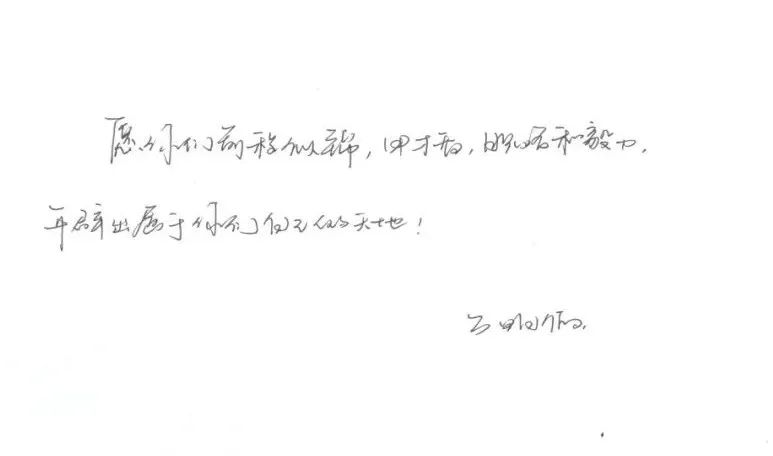 愿你们前程似锦,用才智,胆略和毅力,
开辟出属于你们自己的天地!